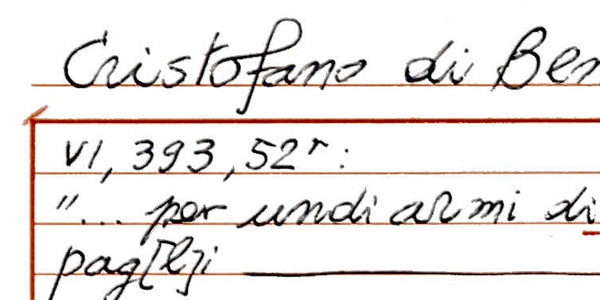 Cristofano di Ben
VI, 393, 52r:
"... per undi armi di
pag[l]i